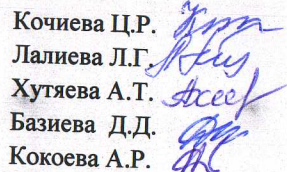 Кочиева Ц.Р.
Лалиева Л.Г.
Хутяева А.Т.
Базиева Д.Д.
Кокоева А.Р.